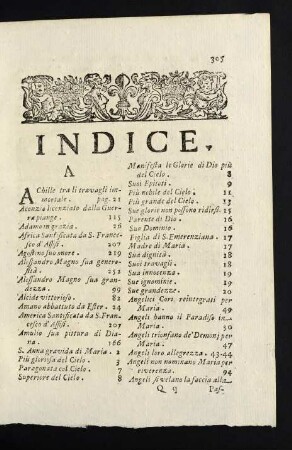 305
INDICE.
A
AChille tra li travagli im-
mortale. pag. 21
Acunzia licenziato dalla Guer-
ra piange. 115
Adamo in grazia. 26
Africa Santificata da S. France-
sco d'Assisi. 207
Agostino suo more. 219
Alessandro Magno sua genero-
sità. 251
Alessandro Magno sua gran-
dezza. 99
Alcide vittorioso. 82
Amano abbattuto da Ester. 24
America Santificata da S. Fran-
cesco d'Assisi. 207
Amulio sua pittura di Dia-
na. 166
S. Anna gravida di Maria. 2
Più gloriosa del Cielo. 3
Paragonata col Cielo. 7
Superiore del Cielo. 8
Manifesta le Glorie di Dio più
del Cielo. 8
Suoi Epiteti. 9
Più nobile del Cielo. 11
Più grande del Cielo. 13
Sue glorie non possono ridirsi. 15
Parente di Dio. 16
Suo Dominio. 16
Figlia di S. Emerenziana. 17
Madre di Maria. 17
Sua dignità. 18
Suoi travagli. 18
Sua innocenza. 19
Sue ignominie. 19
Sue grandezze. 20
Angelici Cori, reintegrati per
Maria. 49
Angeli hanno il Paradiso in
Maria. 50
Angeli trionfano de'Demonj per
Maria. 47
Angeli loro allegrezza. 43-44
Angeli non nominano Maria per
riverenza. 94
Angeli si velano la faccia alla
Q q Pas-